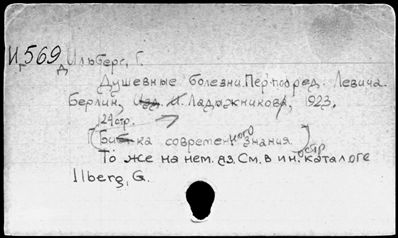 И569 Ильберг, Г.
Душевные болезни. Пер. под ред. Левича.
Берлин, Изд. И. Ладыжникова, 1923.
124стр.
(Бибка современного знания)
То же на нем. яз. См. в ин.остр. каталоге
Ilberg, G.